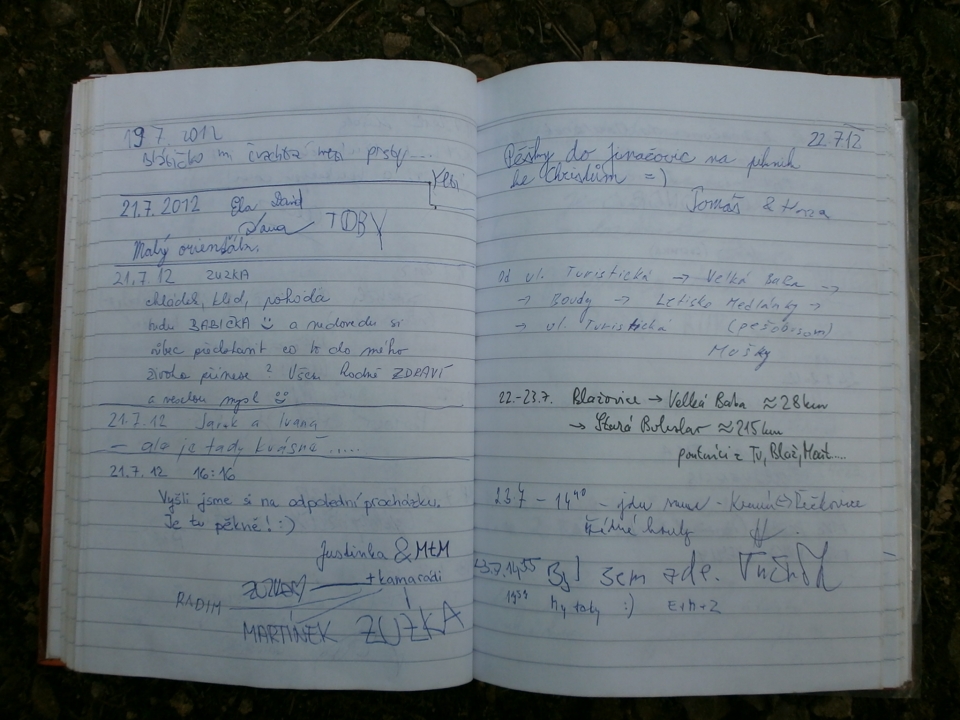 19 7. 2012
21.7. 2012 Ela David
Dana TOBY
Malý orienťák.
21.7.12 ZUZKA
chládek, klid, pohoda
budu BABIČKA a nedovedu si
vůbec představit co to do mého
života přinese? Všem hodně ZDRAVÍ
a veselou mysl
21.7.12 Jarek a Ivana
– ale je tady krásně .....
21.7. 12 16:16
Vyšli jsme si na odpolední procházku.
Je tu pěkné! :)
Justinka & M+M
+ kamarádi
RADIM
MARTÍNEK ZUZKA
22.7.12
Pěšky do Jinačovic na piknik
ke Christům =)
Tomáš &
Od ul. Turistická → Velká Baba →
→ Boudy → Letiště Medlánky →
→ ul. Turistická (pešobusom)
Mušky
22.-23.7. Blažovice → Velká Baba ≈ 28km
→ Stará Boleslav ≈ 215km
poutníci z Tv, Blaž,
23.7 – 14⁴⁰ – jdu sám –
Žádné houby
23.7. 14:55 Byl sem zde.
14⁵⁹ My taky :) E+M+Z